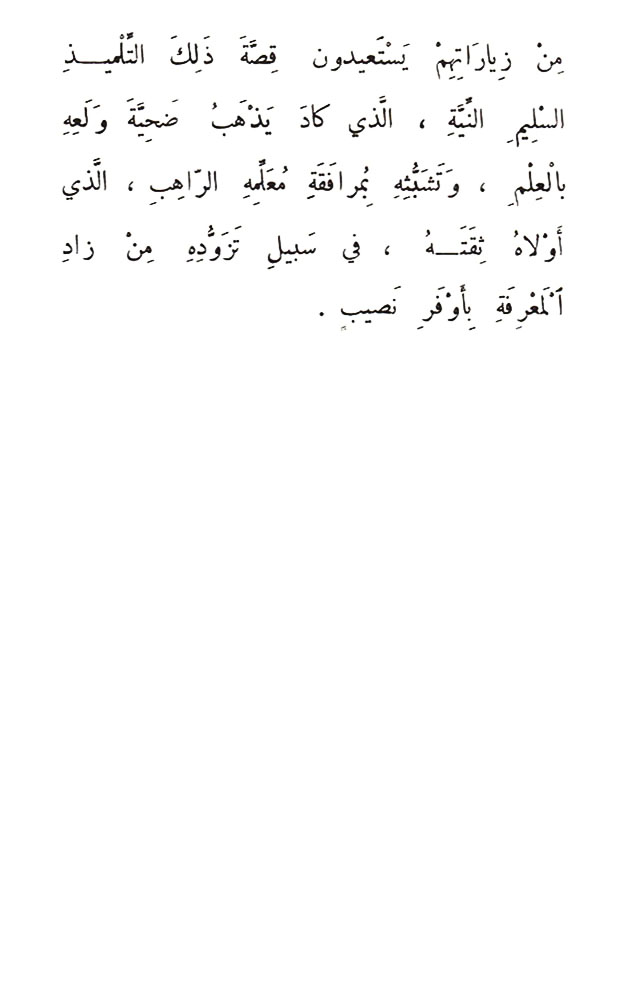 مِنْ زِيارَاتِهِمْ يَسْتَعيدون قِصَّةَ ذَلِكَ التِّلْميـــذِ
السْلِيمِ النِّيَّةِ ، الَّذي كادَ يَذْهَبُ ضَحِيَّةَ وَلَعِهِ
بالْعِلْمِ ، وَتَشَبُّثِهِ بُمرافَقَةِ مُعَلِّمِهِ الرّاهِبِ ، الَّذي
أَوْلاهُ ثِقَتَــهُ ، في سَبيلِ تَزَوُّدِهِ مِنْ زادِ
ٱلْمَعْرِفَةِ بِأَوْفَرِ نَصيبٍ .